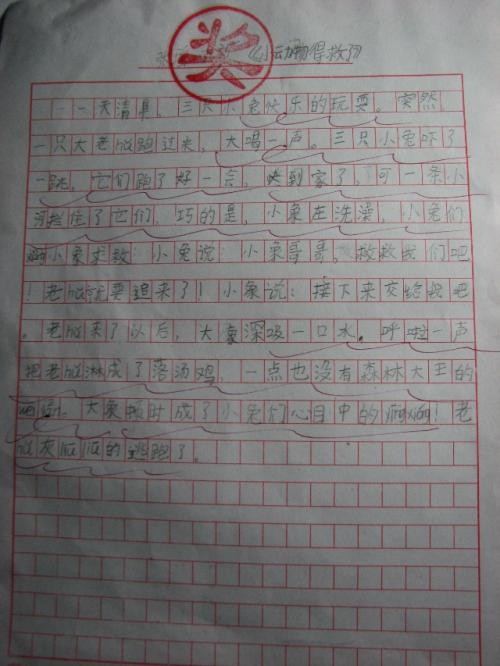 奖 《小动物得救了》
一天清晨，三只小兔快乐的玩耍。突然
一只大老虎跑过来，大喝一声。三只小兔吓了
一跳，它们跑了好一会，快到家了，可一条小
河拦住了它们，巧的是，小象在洗澡，小兔们
向小象求救：小兔说：小象哥哥，救救我们吧
！老虎就要追来了！小象说：接下来交给我吧
。老虎来了以后，大象深吸一口水，呼啦一声
把老虎淋成了落汤鸡，一点也没有森林大王的
大象顿时成了小兔们心目中的 ！老
虎灰溜溜的逃跑了。